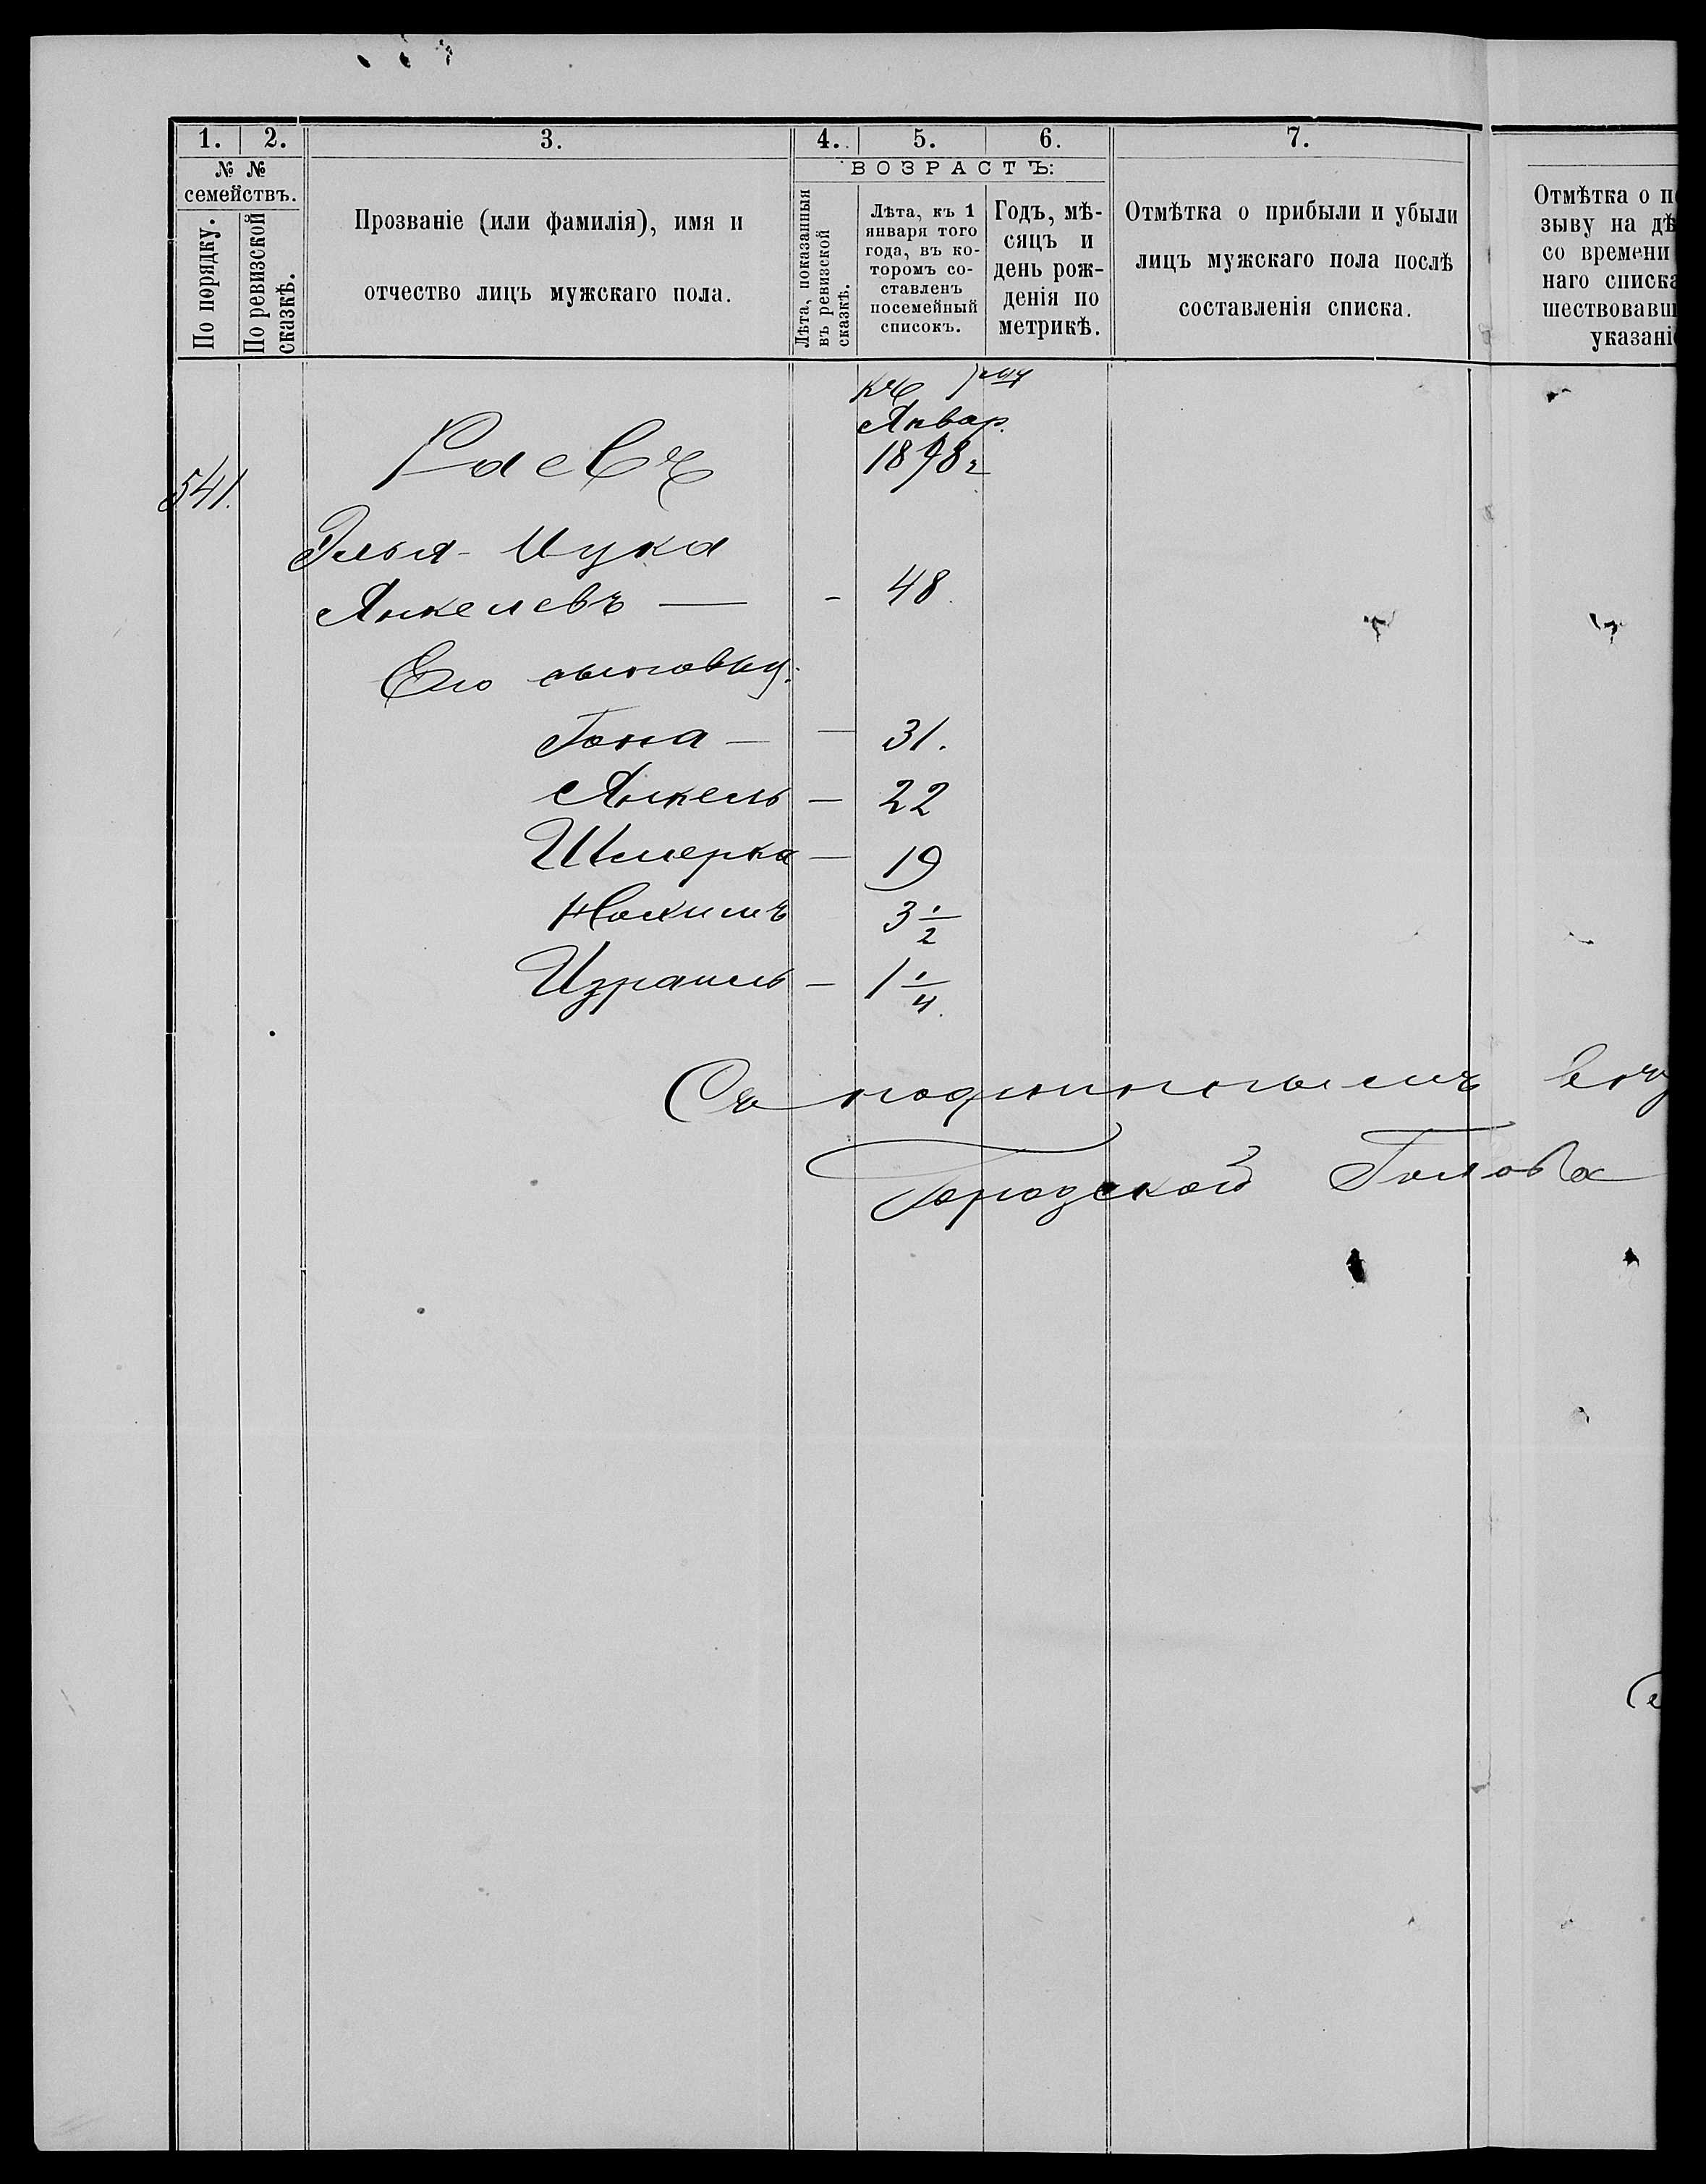 1. 2. 3. 4. 5. 6. 7.
№ № семействъ.
По порядку.
По ревизской сказкѣ.
Прозваніе (или фамилія), имя и
отчество лицъ мужскаго пола.
ВОЗРАСТЪ:
Лѣта, показанныя
въ ревизской
сказкѣ.
Лѣта, къ 1
января того
года, въ ко-
торомъ со-
ставленъ
посемейный
списокъ.
Годъ, мѣ-
сяцъ и
день рож-
денія по
метрикѣ.
Отмѣтка о прибыли и убыли
лицъ мужскаго пола послѣ
составленія списка.
Отмѣтка о п
зыву на дѣ
со времени
наго списка
шествовавш
указані
къ 1му
Январ.
1898 г
541.
Раевъ
Элья-Мука
Янкелевъ — - 48.
Его сыновья:
Гона — — 31.
Янкель — 22
Шмерка — 19
Нохимъ 3 1/2
Израиль — 1 1/4.
Съ подлиннымъ вѣр
Городской Голова